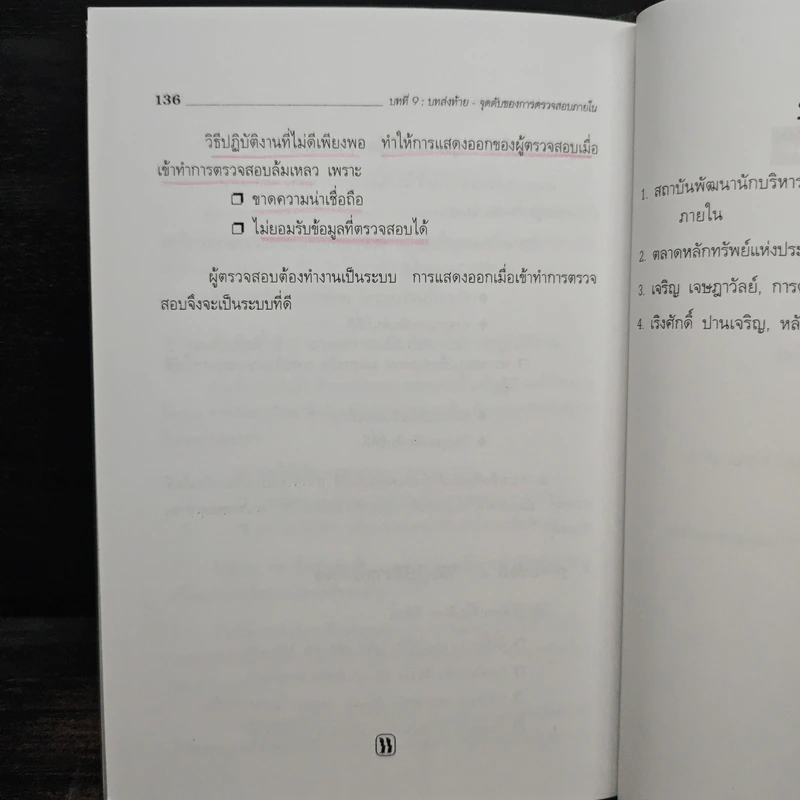 136
บทที่ 9 : บทส่งท้าย - จุดดับของการตรวจสอบภายใน
วิธีปฏิบัติงานที่ไม่ดีเพียงพอ ทำให้การแสดงออกของผู้ตรวจสอบเมื่อ
เข้าทำการตรวจสอบล้มเหลว เพราะ
❐ ขาดความน่าเชื่อถือ
❐ ไม่ยอมรับข้อมูลที่ตรวจสอบได้
ผู้ตรวจสอบต้องทำงานเป็นระบบ การแสดงออกเมื่อเข้าทำการตรวจ
สอบจึงจะเป็นระบบที่ดี
1. สถาบันพัฒนานักบริหาร
ภายใน
2. ตลาดหลักทรัพย์แห่งประ
3. เจริญ เจษฎาวัลย์, การ
4. เริงศักดิ์ ปานเจริญ, หลั